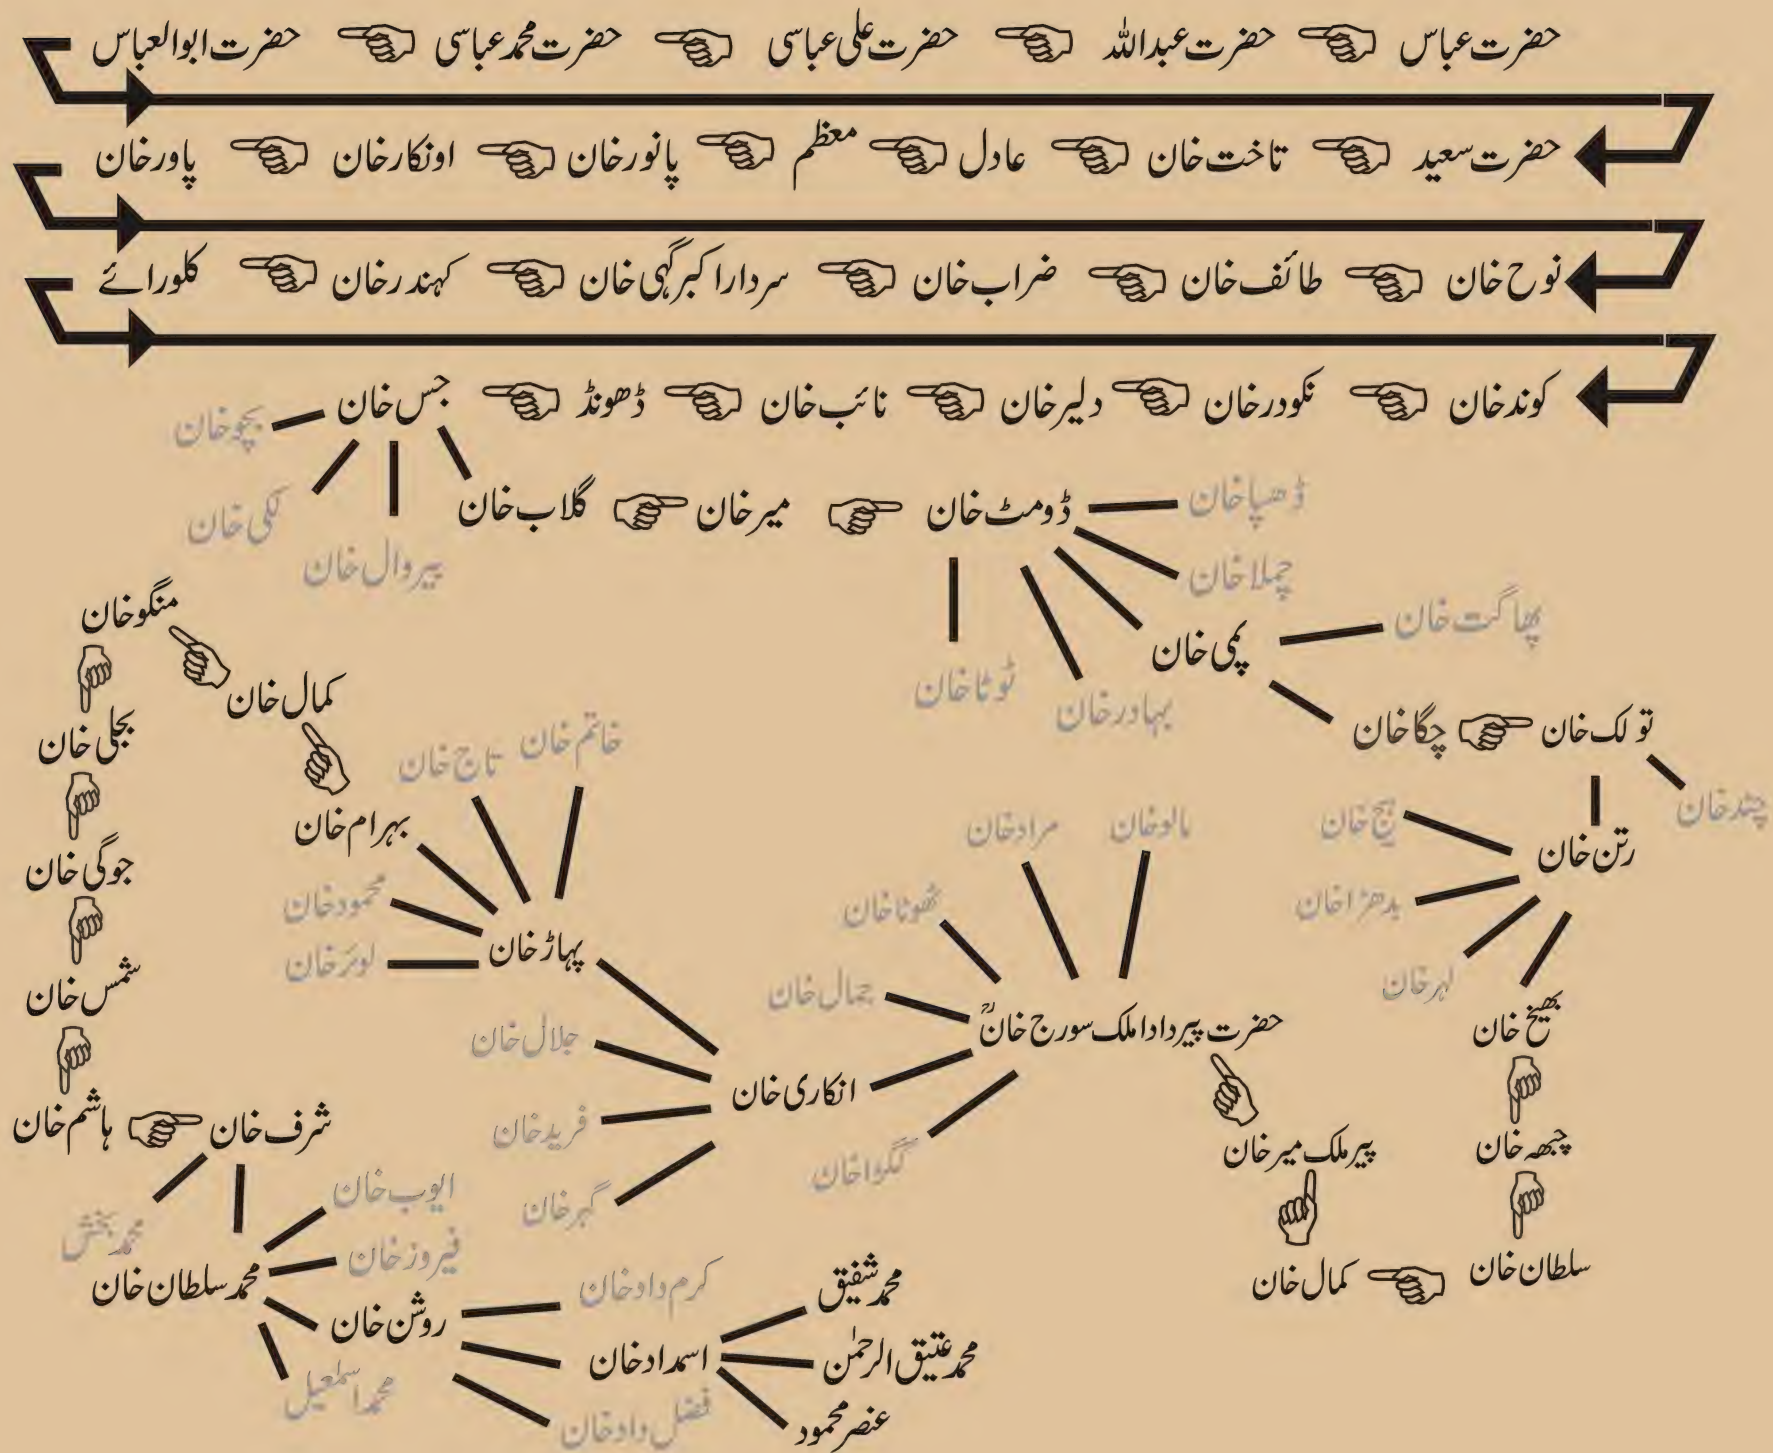 حضرت عباس حضرت عبداللہ حضرت علی عباسی حضرت محمد عباسی حضرت ابوالعباس
حضرت سعید تاخت خان عادل معظم پانورخان اونکارخان پاورخان
نوح خان طائف خان ضراب خان سردار اکبر گہی خان کہندرخان کلورائے
کوندخان نکودرخان دلیرخان نائب خان ڈھونڈ جس خان
بچوخان
لکی خان
پیروال خان
گلاب خان میرخان ڈومٹ خان
ڈھپاخان
چملاخان
پمی خان
بہادرخان
ٹوٹاخان
پھاگت خان
چگاخان تولک خان
چندخان
رتن خان
بدھڑاخان
لہرخان
بھیخ خان
چبھہ خان
سلطان خان
کمال خان
پیر ملک میرخان
حضرت پیر دادا ملک سورج خانؒ
مالوخان
مرادخان
ٹھوٹاخان
جمال خان
انکاری خان
پہاڑخان
جلال خان
فریدخان
گہرخان
خاتم خان
تاج خان
بہرام خان
محمودخان
کمال خان
منگوخان
بجلی خان
جوگی خان
شمس خان
ہاشم خان
شرف خان
محمد بخش
محمد سلطان خان
ایوب خان
فیروزخان
روشن خان
محمد اسمٰعیل
کرم دادخان
اسمدادخان
فضل دادخان
محمد شفیق
محمد عتیق الرحمٰن
عنصر محمود